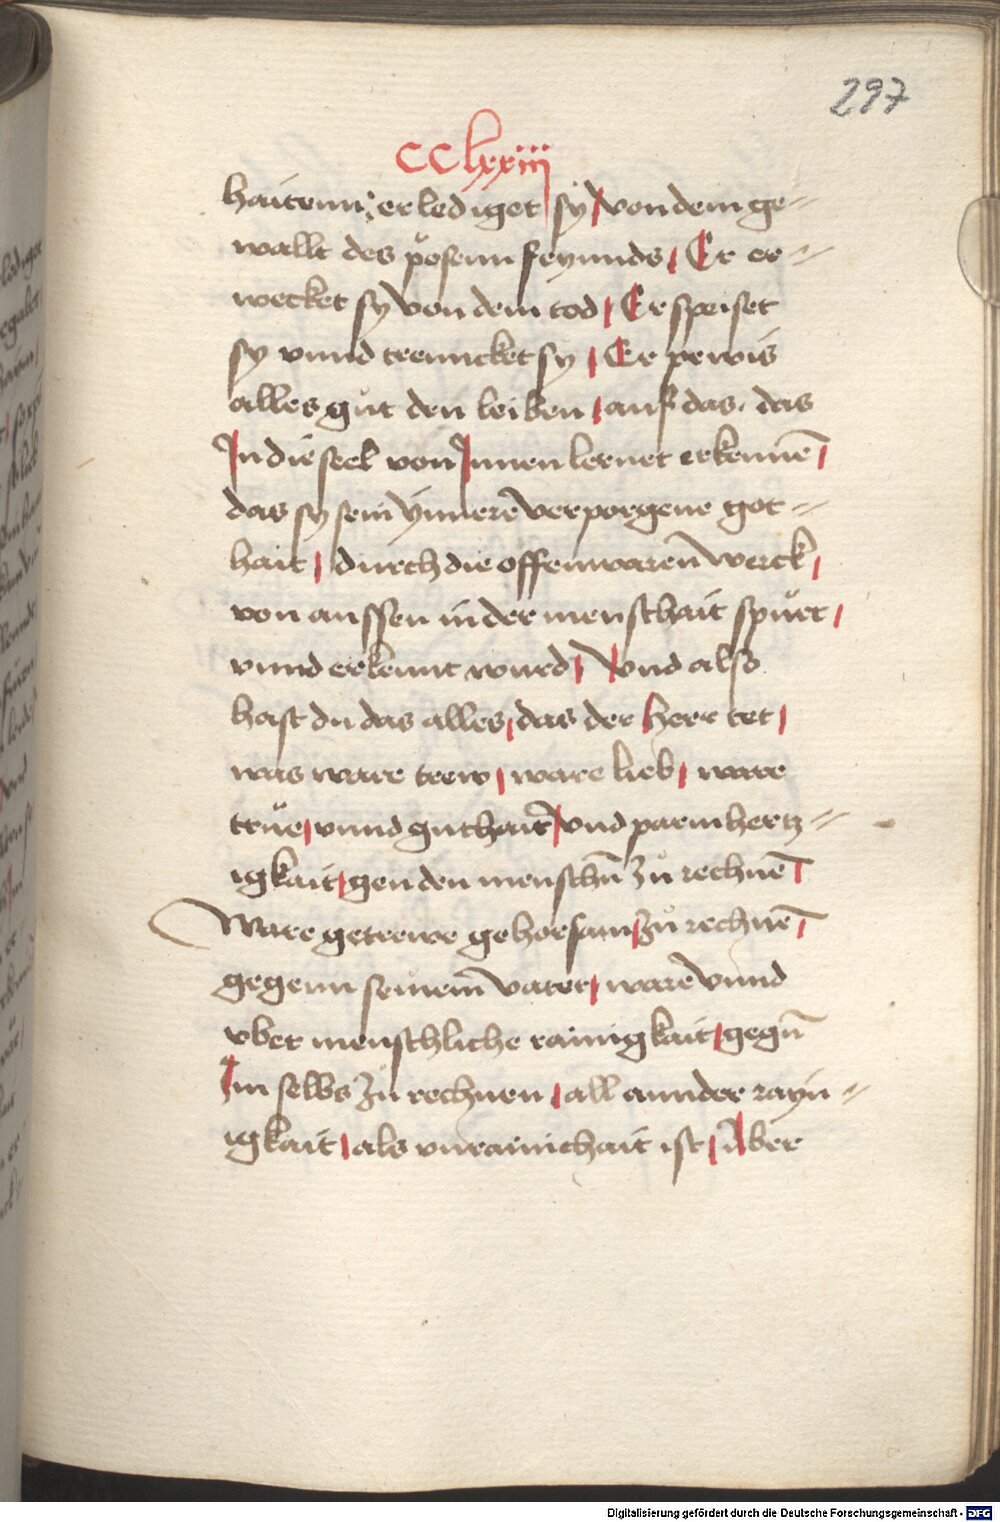 297
CClxxiiij
haitenn; erlediget sÿ von dem ge=
wallt des pösenn feynnds, Er er=
wecket sy von dem tod, Er speiset
sy vnnd trenncket sy, Er pewis
alles gůt den leiben, auf das, das
In die seel von Innen lernet erkennē,
das sy sein ÿnnerē verporgene got=
hait, durch die offennwarēn werck,
von anssen in der menschait spürt,
vnnd erkennt wurd, Vnd also
hast du das alles, das der herr tet,
was ware trew, ware lieb, ware
trüe, vnnd guthait, vnd parmhertz=
igkait, gen den menschn̄ zů rechnē,
Ware getrewe gehorsam, zů rechnē,
gegenn seinem̄ vater, warē vnnd
vber menschliche rainigkait, gegn̄
Im selbs zů rechnen, all annder rayn=
igkait, als vnrainichait ist, v̈ber
Digitalisierung gefördert durch die Deutsche Forschungsgemeinschaft - DFG